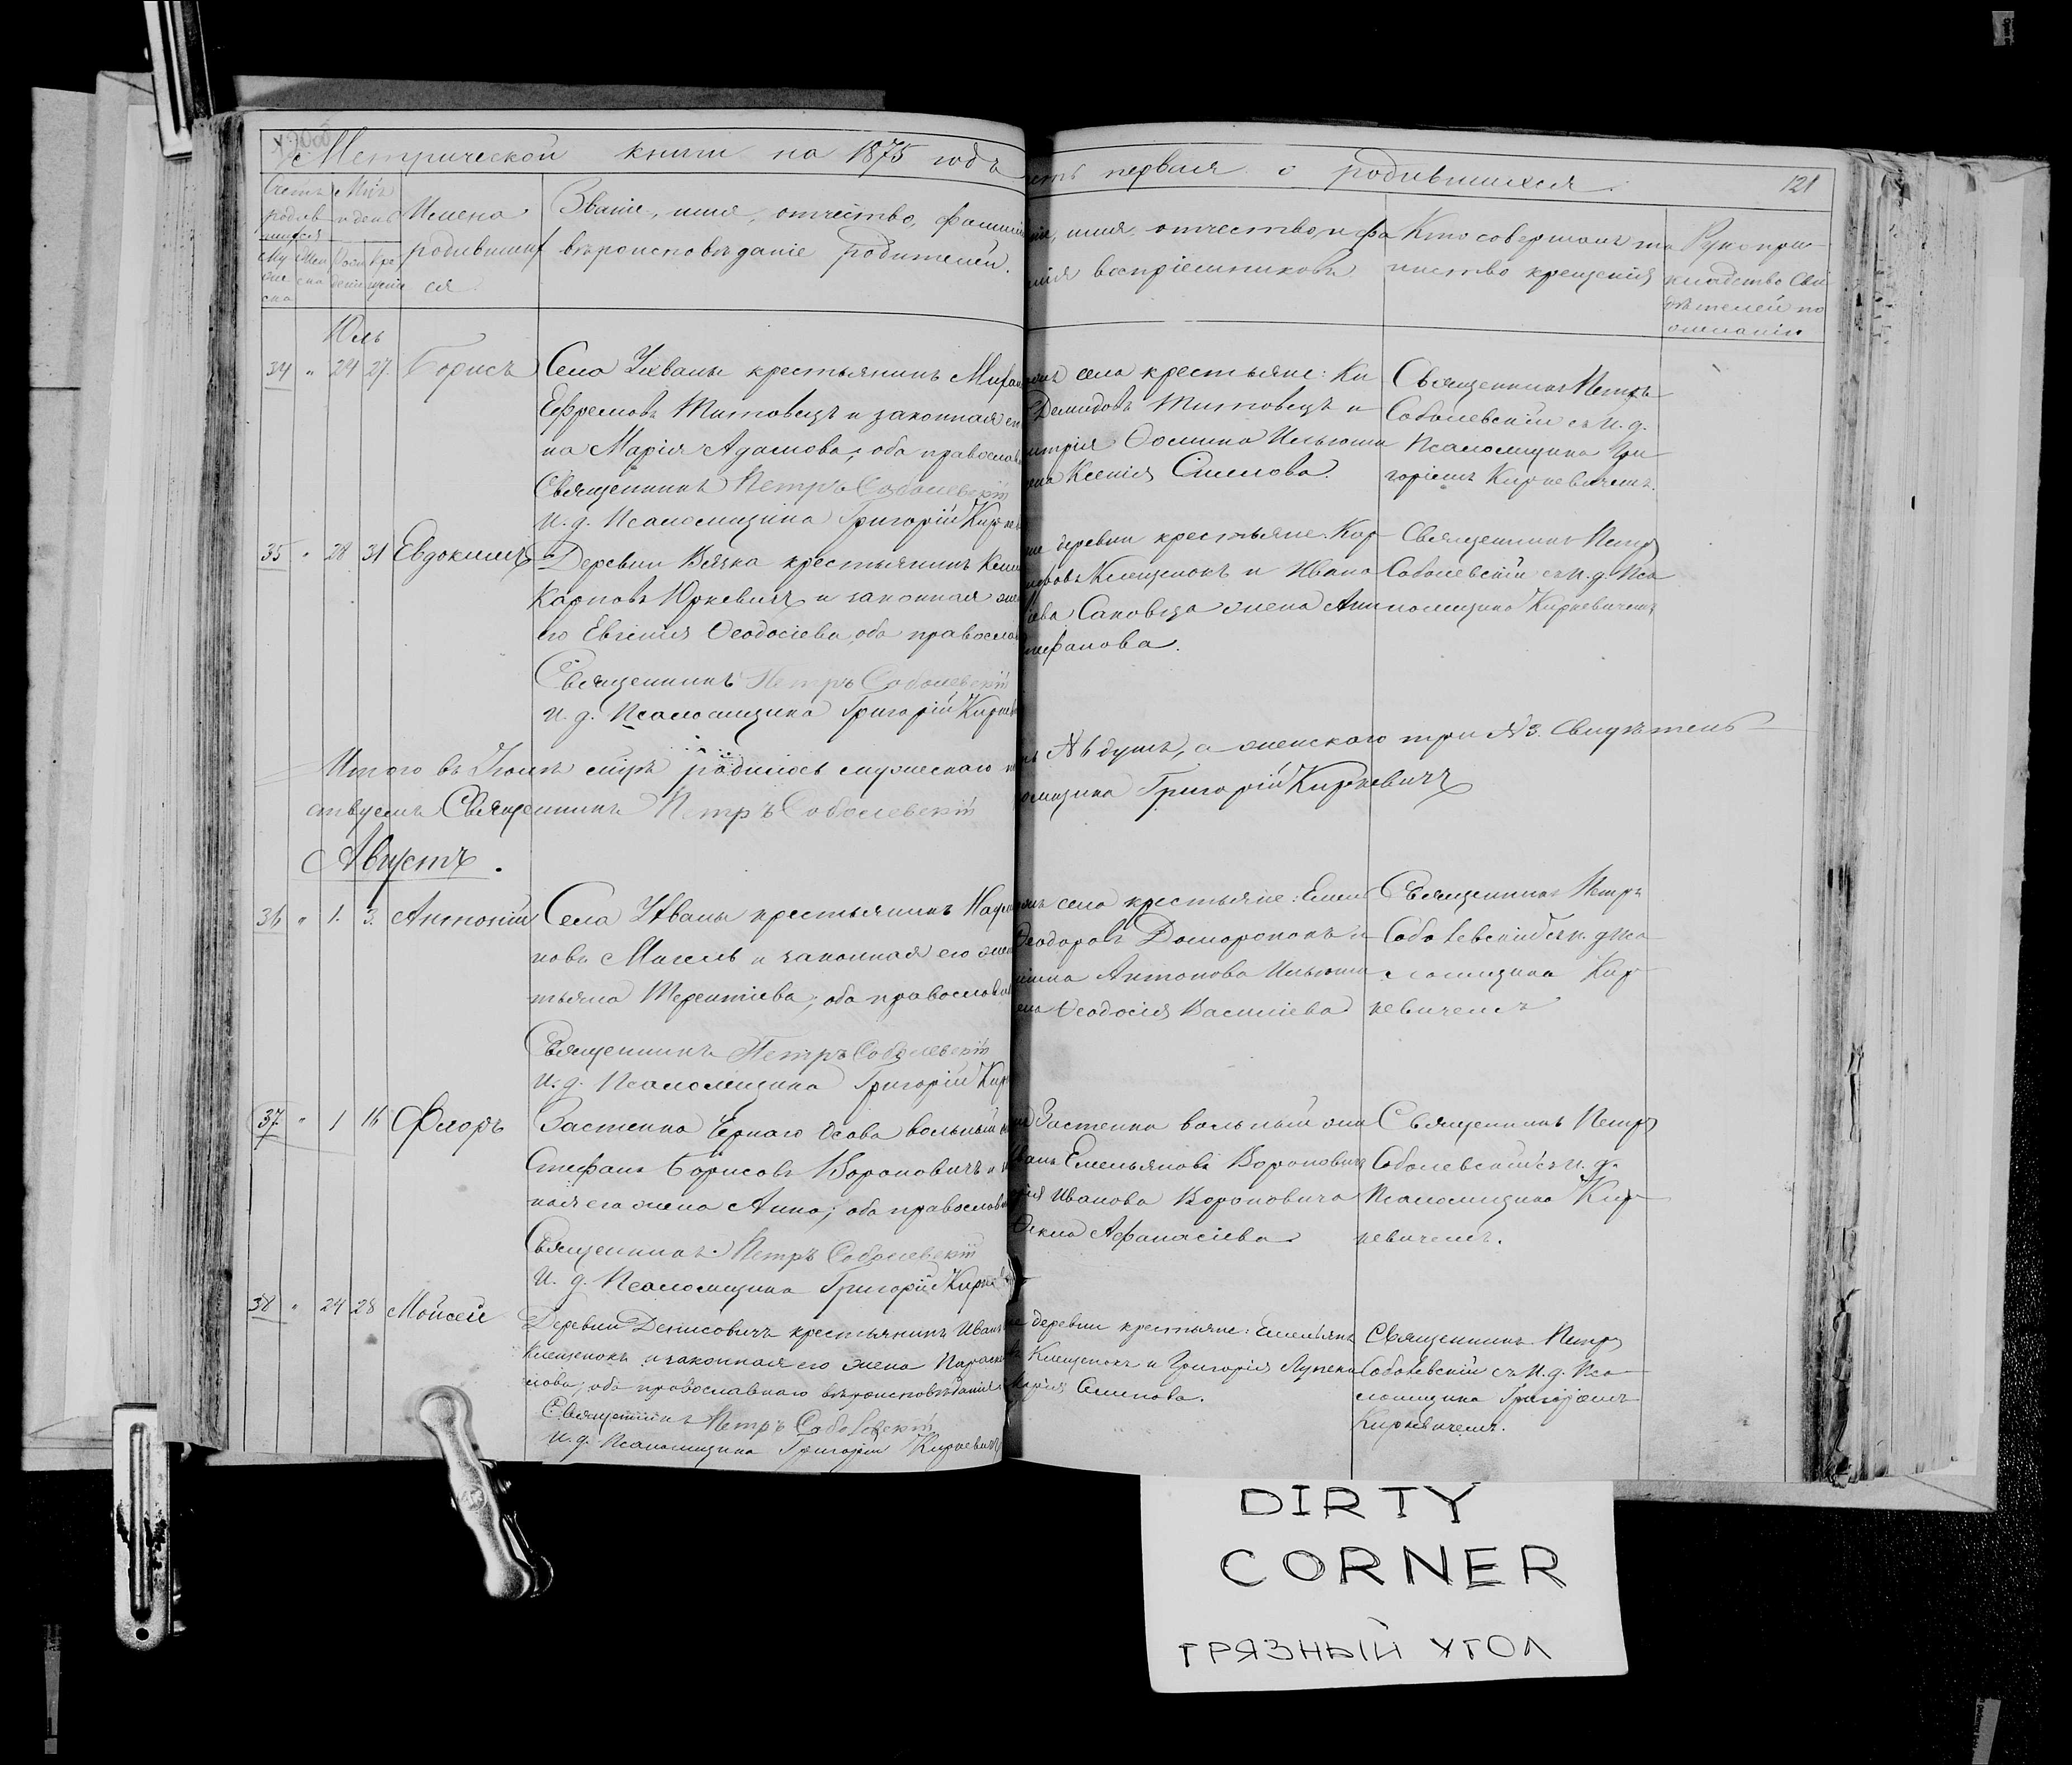 Метрической книги на 1875 годъ
первая о родившихся.
121
Счетъ родив
шихся
Мѣс
и день
Имена
родивших
ся
Званіе, имя, отчество, фамилі
вѣроисповѣданіе родителей.
имя отчество и фа
мілія воспріемниковъ
Кто совершалъ та
инство крещенія
Рукопри
кладство сви
дѣтелей по
желанію
Юль
34 " 24 27. Борисъ
Села Ухвалы крестьянинъ Миха
Ефремовъ Титовецъ и законная
на Марія Адамова; оба православ
Священникъ Петръ Соболевскій
И. д. Псаломщика Григорій Кирке
села крестьяне: Ки
Демидовъ Титовецъ и
Ѳомина Ильюши
Ксенія Симнова.
Священникъ Петръ
Соболевскій съ И. д.
Псаломщика Гри
горіемъ Киркевичемъ.
35 " 28 31 Евдокимъ
Деревни Вязка крестьянинъ
Карповъ Юркевичъ и законная же
его Евгенія Ѳеодосіева, оба православ
Священникъ Петръ Соболевскій
И. д. Псаломщика Григорій Кирке
деревни крестьяне: Кар
Клещенокъ и Ивана
Саковца жена Анн
тефанова.
Священникъ Петръ
Соболевскій съ И. д. Пса
ломщика Киркевичемъ
Итого въ Іюлѣ мѣцѣ родилось мужескаго
№ 6 душъ, а женскаго три № 3. Свидѣтель
ствуемъ Священникъ Петръ Соболевскій
ломщика Григорій Киркевичъ
Августъ.
36 " 1. 3. Антоній
Села Ухвалы крестьянинъ Наум
новъ Мисель и законная его жен
тьяна Терентіева; оба православ
Священникъ Петръ Соболевскій
И. д. Псаломщика Григорій Кир
села крестьяне: Емел
Ѳеодоровъ Доморонокъ и
Антонова Ильюши
Ѳеодосія Васильева
Священникъ Петръ
Соболевскій съ и. д Пса
ломщика Кир
кевичемъ
37. " 1 16 Флоръ
Застенка Чернаго Осова вольный
Стефанъ Борисовъ Вороновичъ и
ная его жена Анна; оба православ
Священникъ Петръ Соболевскій
И. д. Псаломщика Григорій Кирке
Застенка вольный
Емельяновъ Вороновичъ
Иванова Вороновича
Ѳекла Афанасіева
Священникъ Петръ
Соболевскій съ И. д.
Псаломщика Кир
кевичемъ.
38 " 24 28 Моисей
Деревни Денисовичъ крестьянинъ Иванъ
Клещенокъ и законная его жена Параск
оба православнаго вѣроисповѣданія
Священникъ Петръ Соболевскій
И. д. Псаломщика Григорій Киркевичъ
деревни крестьяне: Емельянъ
Клещенокъ и Григорія Лупека
Марія Семнова.
Священникъ Петръ
Соболевскій съ И. д. Пса
ломщика Григоріемъ
Киркевичемъ.
DIRTY
CORNER
ГРЯЗНЫЙ УГОЛ